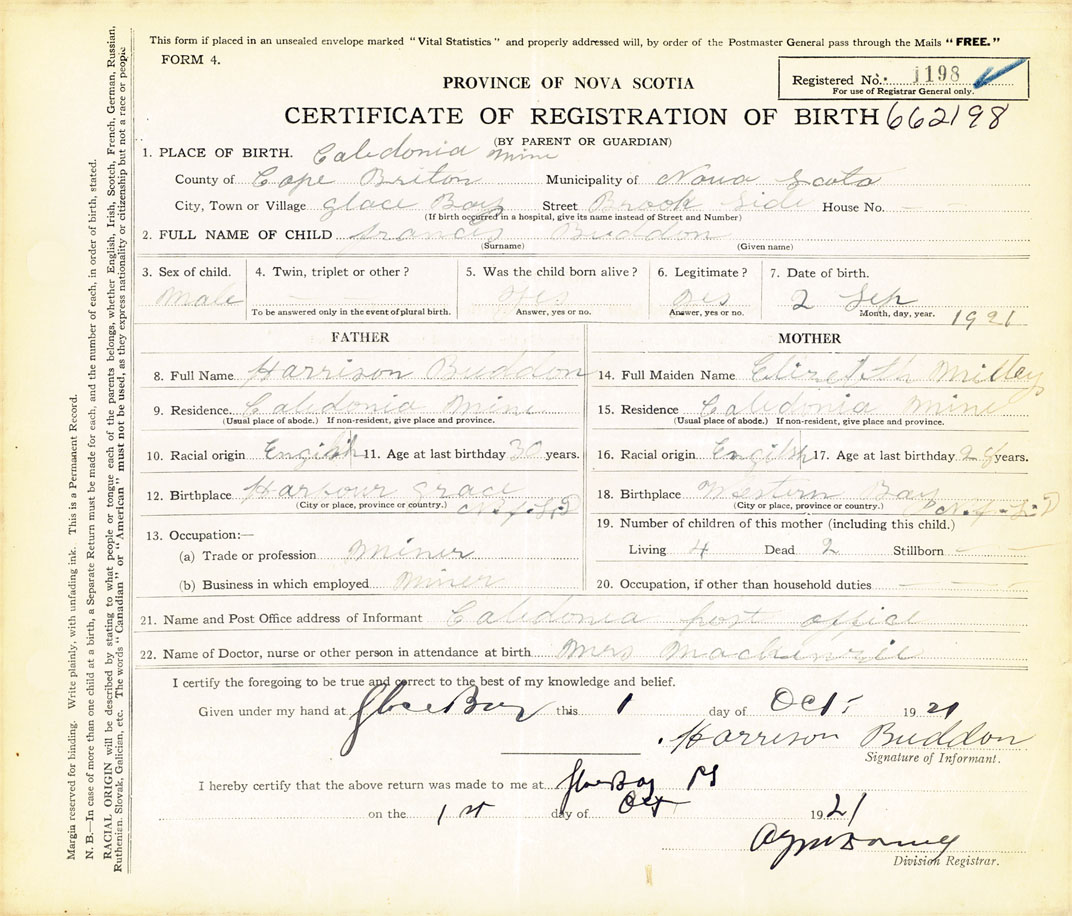 This form if placed in an unsealed envelope marked "Vital Statistics" and properly addressed will, by order of the Postmaster General pass through the Mails "FREE."
FORM 4.
Registered No. 1198
For use of Registrar General only.
PROVINCE OF NOVA SCOTIA
CERTIFICATE OF REGISTRATION OF BIRTH 662198
(BY PARENT OR GUARDIAN)
1. PLACE OF BIRTH. Caledonia Mine
County of Cape Briton Municipality of Nova Scota
City, Town or Village glace Bay Street Brook Side House No.
(If birth occurred in a hospital, give its name instead of Street and Number)
2. FULL NAME OF CHILD francis Buddon
(Surname) (Given name)
3. Sex of child. 4. Twin, triplet or other? 5. Was the child born alive? 6. Legitimate? 7. Date of birth.
Male — — yes yes 2 Sep 1921
To be answered only in the event of plural birth. Answer, yes or no. Answer, yes or no. Month, day, year.
FATHER MOTHER
8. Full Name Harrison Buddon 14. Full Maiden Name
9. Residence. Caledonia Mine 15. Residence Caledonia Mine
(Usual place of abode.) If non-resident, give place and province. (Usual place of abode.) If non-resident, give place and province.
10. Racial origin English 11. Age at last birthday 30 years. 16. Racial origin English 17. Age at last birthday 28 years.
12. Birthplace Harbour grace N.f.L.D 18. Birthplace Western Bay N.f.L.D
(City or place, province or country.) (City or place, province or country.)
13. Occupation:— 19. Number of children of this mother (including this child.)
(a) Trade or profession Miner Living 4 Dead 2 Stillborn —
(b) Business in which employed Miner 20. Occupation, if other than household duties
21. Name and Post Office address of Informant Caledonia post office
22. Name of Doctor, nurse or other person in attendance at birth Mrs
I certify the foregoing to be true and correct to the best of my knowledge and belief.
Given under my hand at Glace Bay this 1 day of Oct. 1921
Harrison Buddon
Signature of Informant.
I hereby certify that the above return was made to me at Glace Bay
on the 1st day of Oct 1921
Division Registrar.
Margia reserved for binding. Write plainly, with unfading ink. This is a Permanent Record.
N. B.—In case of more than one child at a birth, a Separate Return must be made for each, and the number of each, in order of birth, stated.
RACIAL ORIGIN will be described by stating to what people or tongue each of the parents belongs, whether English, Irish, Scotch, French, German, Russian.
Ruthenian. Slovak, Galician, etc. The words "Canadian" or "American" must not be used, as they express nationality or citizenship but not a race or people